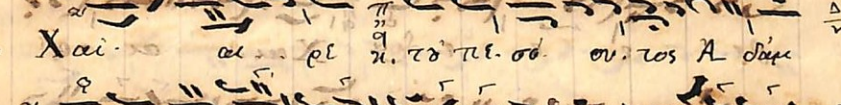 Χαῖ αι ρε κ. τοῦ πε. σό ον. τος Α δάμ